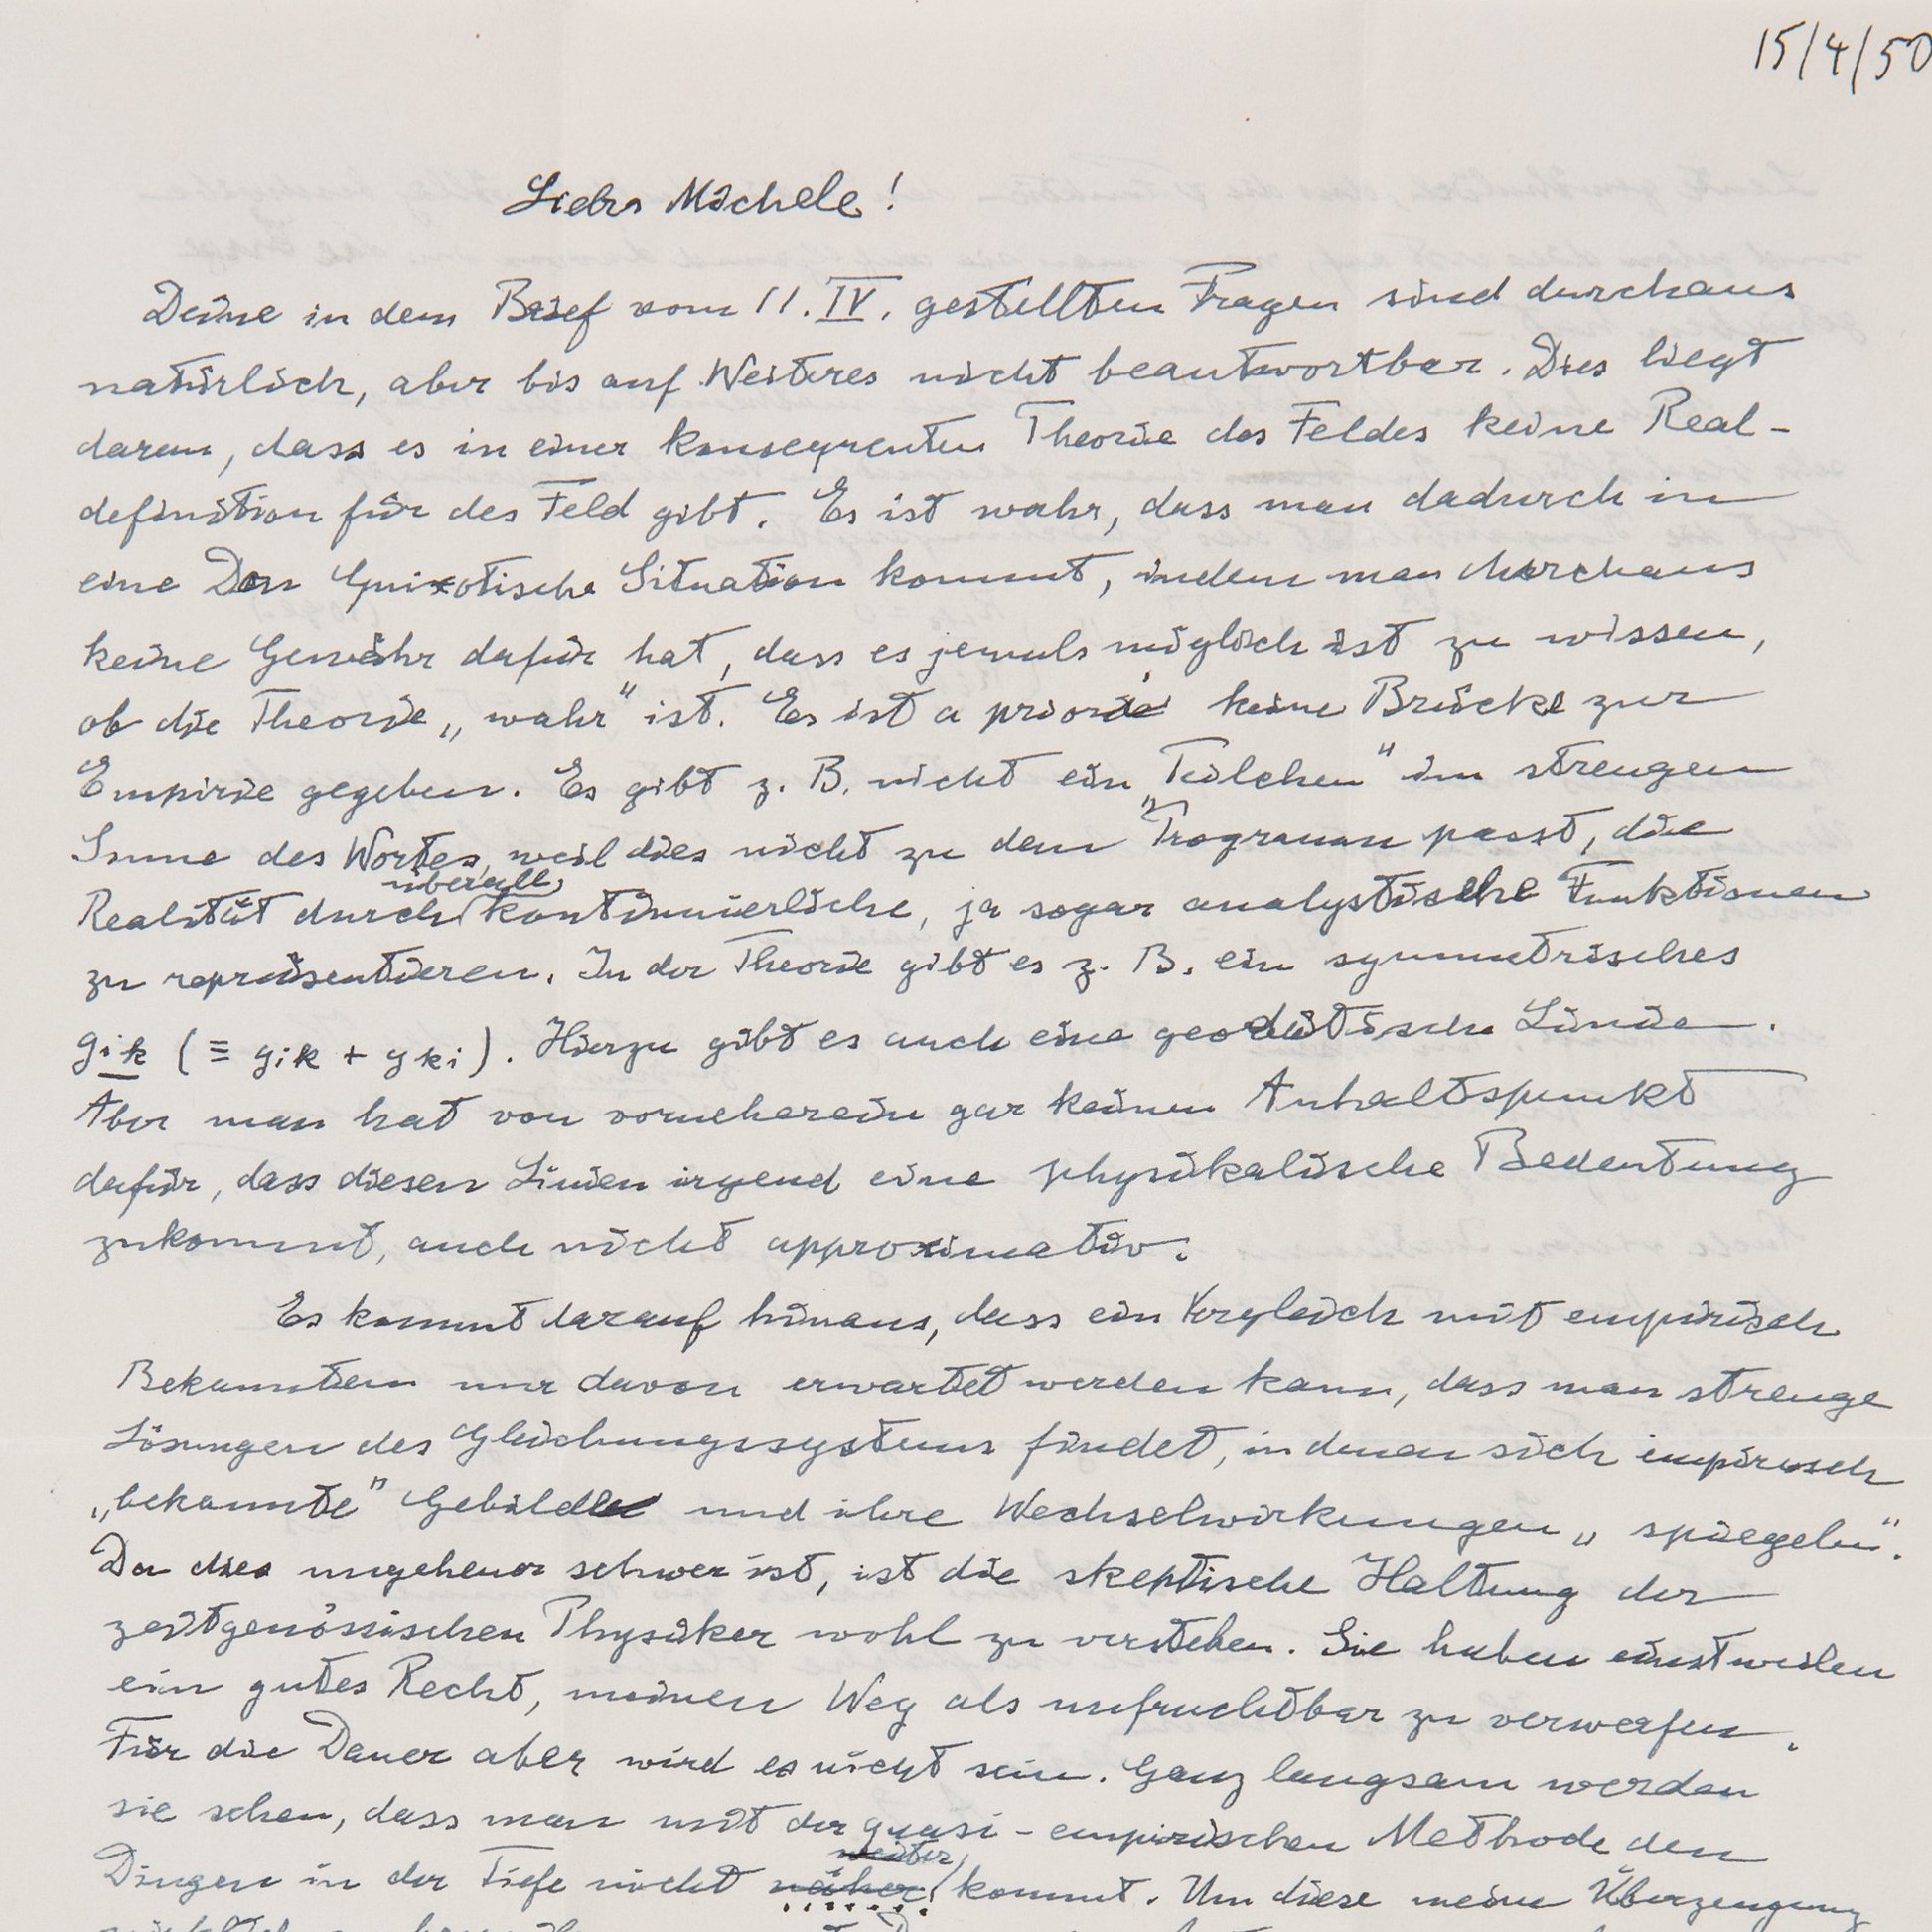 15/4/50
Lieber Michele!
Deine in dem Brief vom 11. IV. gestellten Fragen sind durchaus
natürlich, aber bis auf Weiteres nicht beantwortbar. Dies liegt
daran, dass es in einer konsequenten Theorie des Feldes keine Real-
definition für das Feld gibt. Es ist wahr, dass man dadurch in
eine Don Quixotische Situation kommt, indem man durchaus
keine Gewähr dafür hat, dass es jemals möglich ist zu wissen,
ob die Theorie „wahr" ist. Es ist a priori keine Brücke zur
Empirie gegeben. Es gibt z. B. nicht ein „Teilchen" im strengen
Sinne des Wortes, weil dies nicht zu dem Programm passt, die
Realität durch überall kontinuierliche, ja sogar analytische Funktionen
zu repräsentieren. In der Theorie gibt es z. B. ein symmetrisches
gik (≡ gik + gki). Hierzu gibt es auch eine geodätische Linie.
Aber man hat von vorneherein gar keinen Anhaltspunkt
dafür, dass diesen Linien irgend eine physikalische Bedeutung
zukommt, auch nicht approximativ.
Es kommt darauf hinaus, dass ein Vergleich mit empirisch
Bekanntem nur davon erwartet werden kann, dass man strenge
Lösungen des Gleichungssystems findet, in denen sich empirisch
„bekannte" Gebilde und ihre Wechselwirkungen „spiegeln".
Da dies ungeheuer schwer ist, ist die skeptische Haltung der
zeitgenössischen Physiker wohl zu verstehen. Sie haben einstweilen
ein gutes Recht, meinen Weg als unfruchtbar zu verwerfen.
Für die Dauer aber wird es nicht sein. Ganz langsam werden
sie sehen, dass man mit der quasi-empirischen Methode den
Dingen in der Tiefe nicht näher weiter kommt. Um diese meine Überzeugung